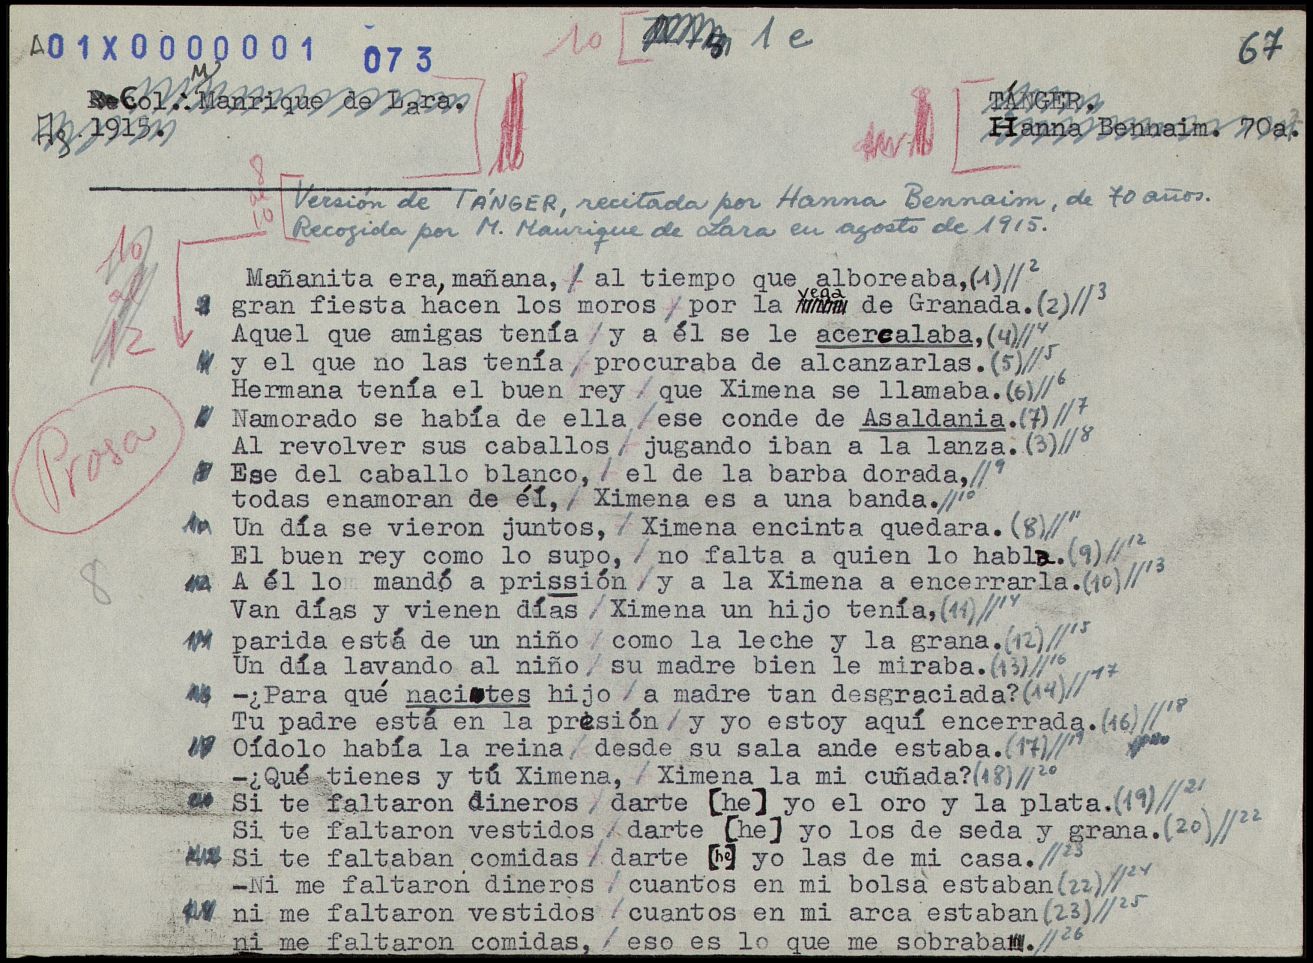 A01X0000001 073 10 [ 1 e 67
Col.: Manrique de Lara. TÁNGER.
1915. Hanna Bennaim. 70a.
8 al 10
Versión de TÁNGER, recitada por Hanna Bennaim, de 70 años.
Recogida por M. Manrique de Lara en agosto de 1915.
10 al 12
Mañanita era, mañana, / al tiempo que alboreaba,(1)//2
gran fiesta hacen los moros / por la vega de Granada.(2)//3
Aquel que amigas tenía / y a él se le acercalaba,(4)//4
y el que no las tenía / procuraba de alcanzarlas.(5)//5
Hermana tenía el buen rey / que Ximena se llamaba.(6)//6
Namorado se había de ella / ese conde de Asaldania.(7)//7
Al revolver sus caballos / jugando iban a la lanza.(3)//8
Prosa
Ese del caballo blanco, / el de la barba dorada,//9
todas enamoran de él, / Ximena es a una banda.//10
Un día se vieron juntos, / Ximena encinta quedara.(8)//11
El buen rey como lo supo, / no falta a quien lo habla.(9)//12
8
A él lo mandó a prissión / y a la Ximena a encerrarla.(10)//13
Van días y vienen días / Ximena un hijo tenía,(11)//14
parida está de un niño / como la leche y la grana.(12)//15
Un día lavando al niño / su madre bien le miraba.(13)//16
-¿Para qué nacites hijo / a madre tan desgraciada?(14)//17
Tu padre está en la presión / y yo estoy aquí encerrada.(16)//18
Oídolo había la reina / desde su sala ande estaba.(17)//19
-¿Qué tienes y tú Ximena, / Ximena la mi cuñada?(18)//20
Si te faltaron dineros / darte [he] yo el oro y la plata.(19)//21
Si te faltaron vestidos / darte [he] yo los de seda y grana.(20)//22
Si te faltaban comidas / darte [he] yo las de mi casa.//23
-Ni me faltaron dineros / cuantos en mi bolsa estaban(22)//24
ni me faltaron vestidos / cuantos en mi arca estaban(23)//25
ni me faltaron comidas, / eso es lo que me sobraba.//26